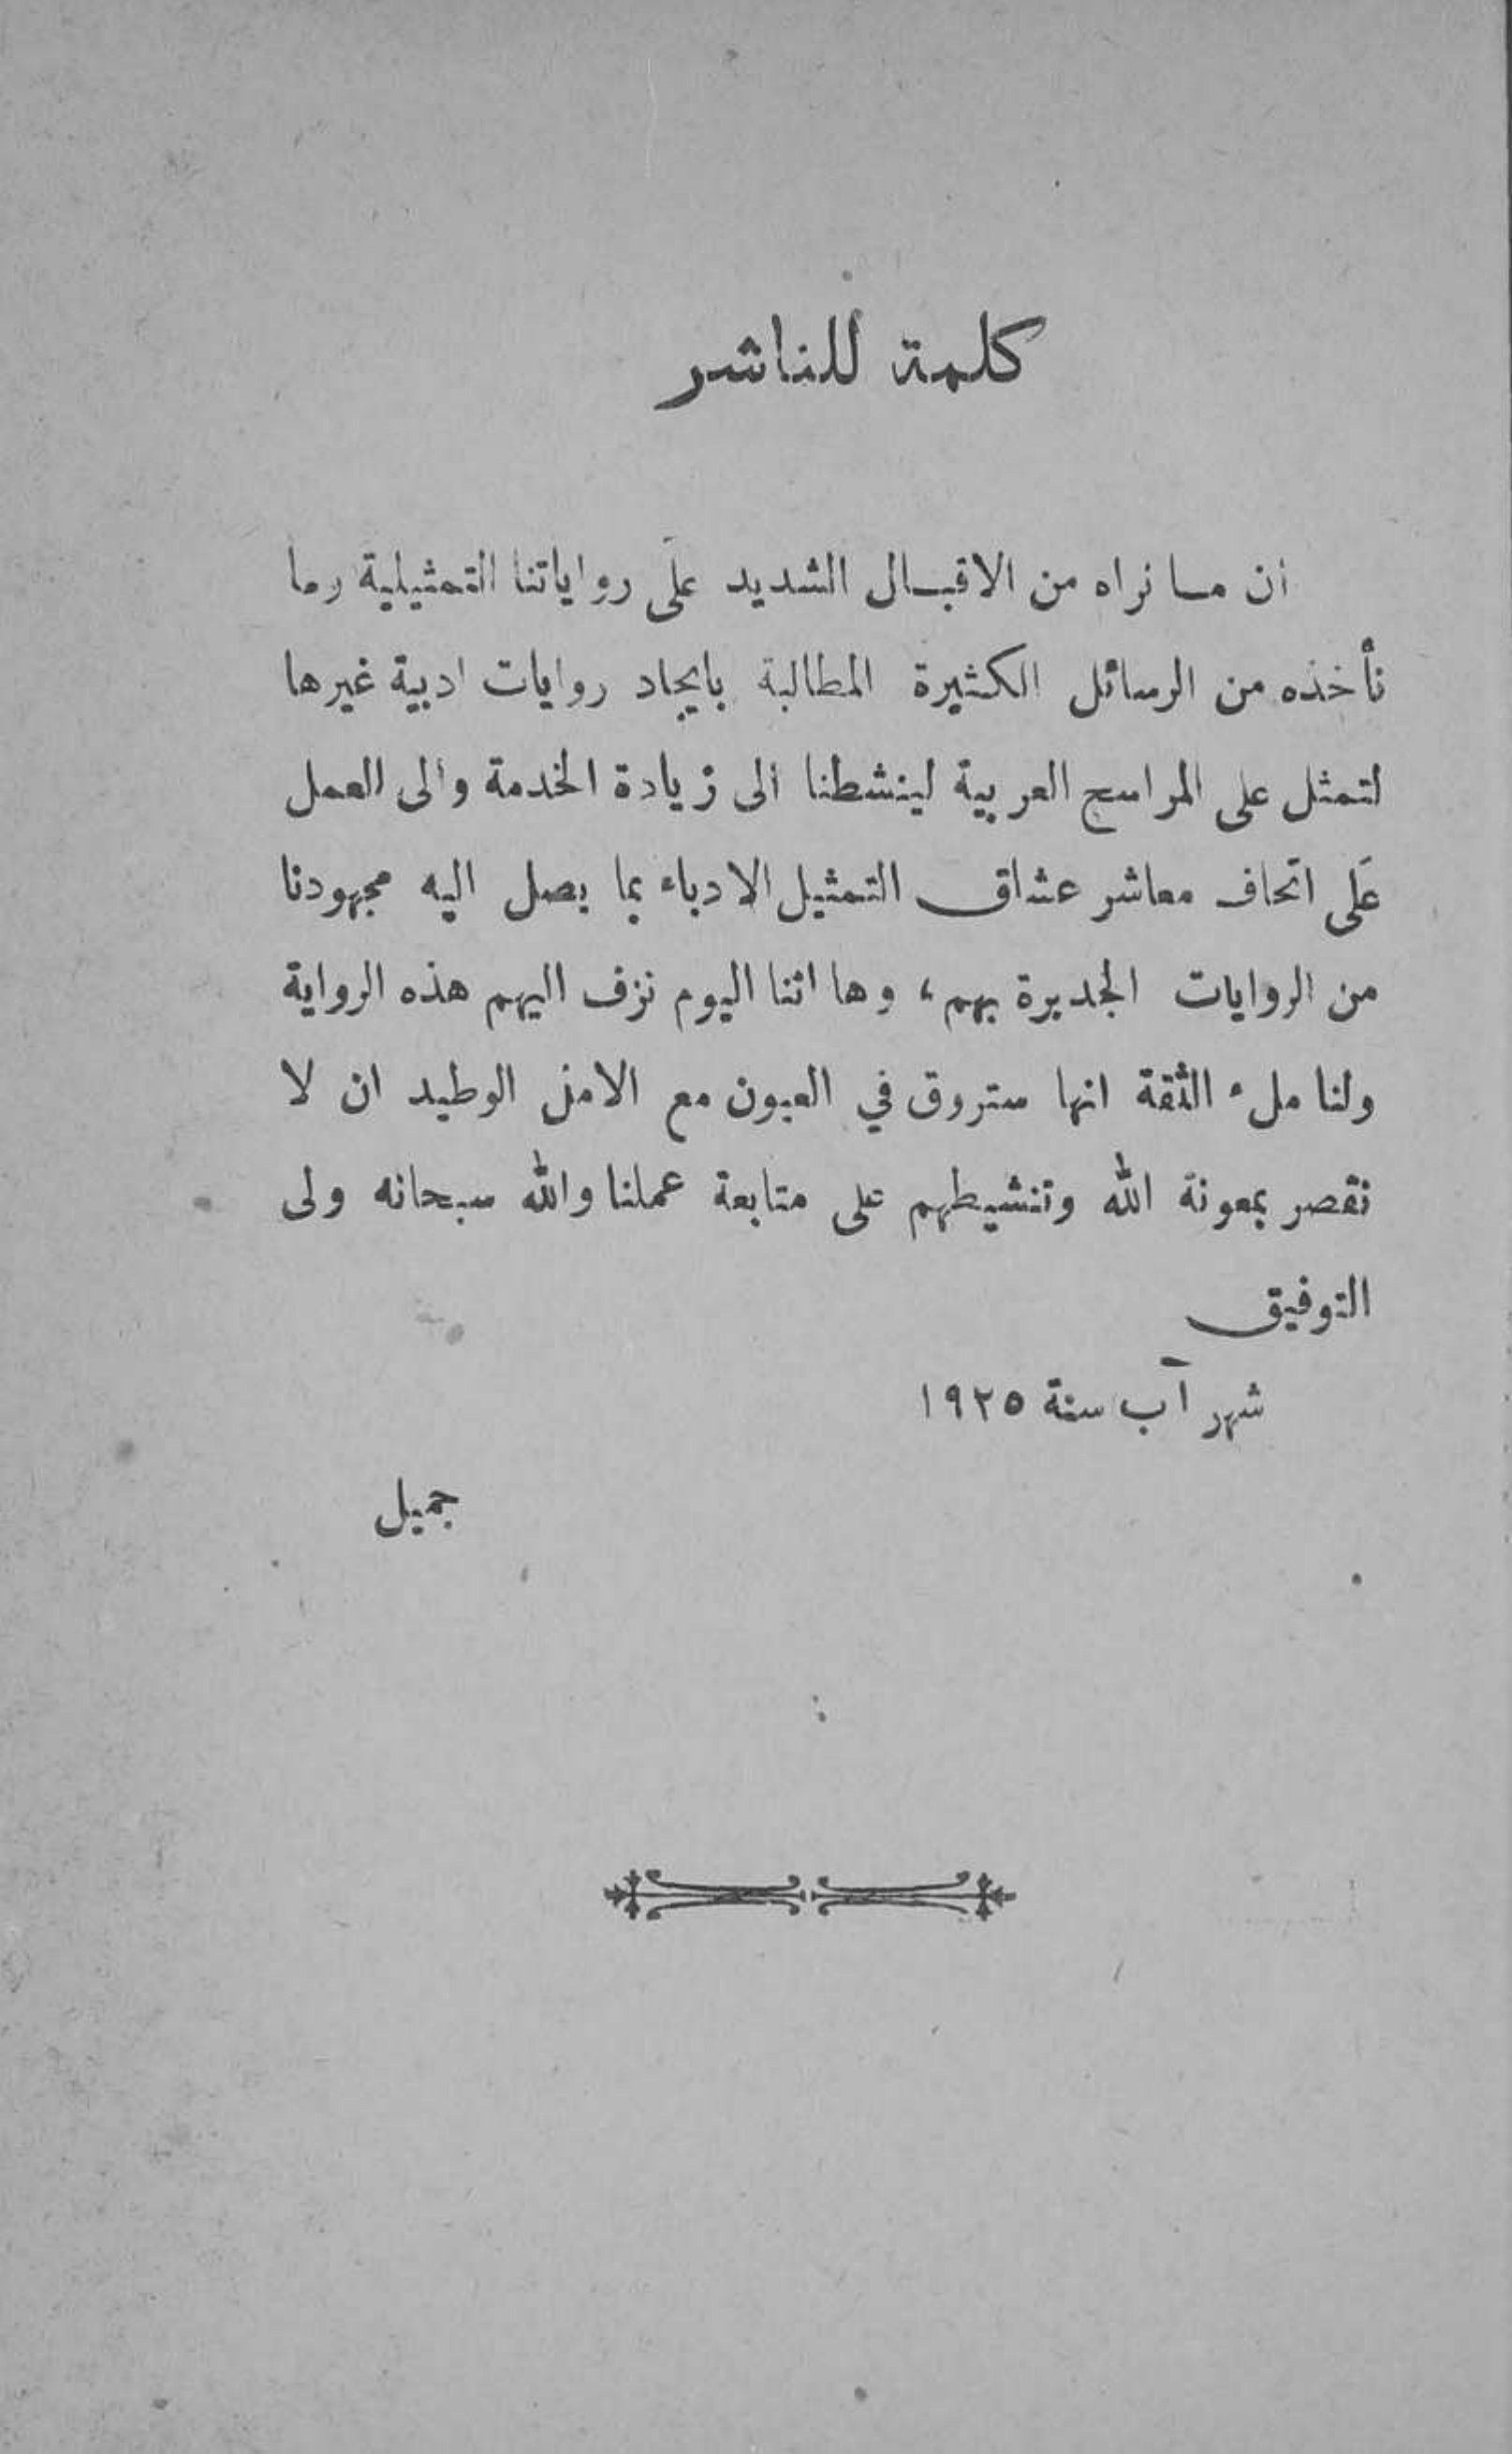 كلمة للناشر
ان ما نراه من الاقبال الشديد على رواياتنا التمثيلية وما
نأخذه من الرسائل الكثيرة المطالبة بايجاد روايات ادبية غيرها
لتمثل على المراسح العربية لينشطنا الى زيادة الخدمة والى العمل
على اتحاف معاشر عشاق التمثيل الادباء بما يصل اليه مجهودنا
من الروايات الجديرة بهم، وها اننا اليوم نزف اليهم هذه الرواية
ولنا ملء الثقة انها ستروق في العيون مع الامل الوطيد ان لا
نقصر بمعونة الله وتنشيطهم على متابعة عملنا والله سبحانه ولى
التوفيق
شهر آب سنة ١٩٢٥
جميل